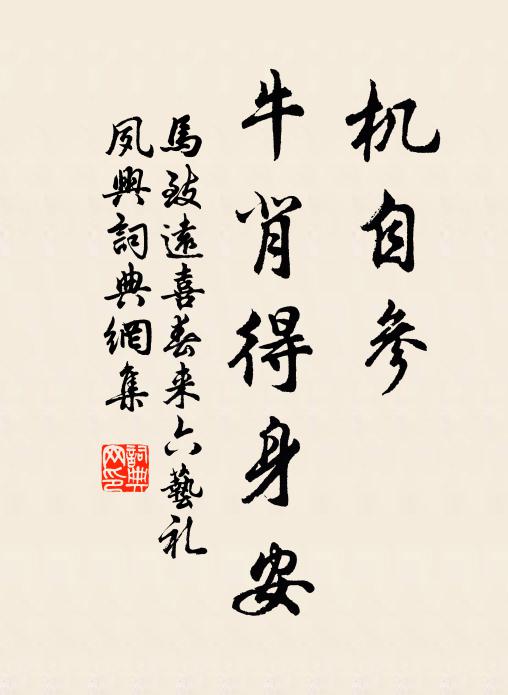 机自参
牛背得身安
馬致遠喜春来六藝礼
夙興詞典網集
詞典网印